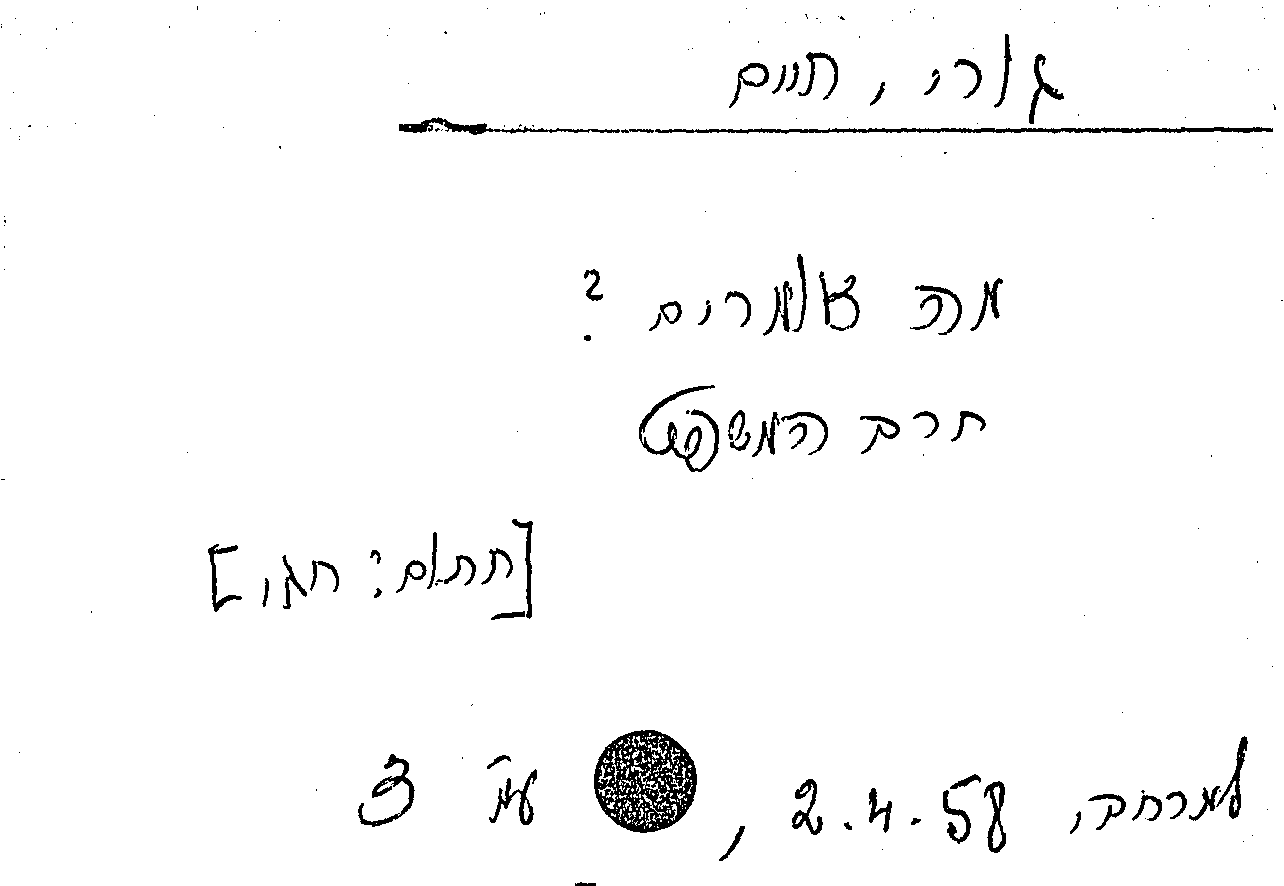 גורי, חיים
מה אומרים ?
חרב המשפט
[חתום: חגי]
למרחב, 2.4.58, עמ' 3